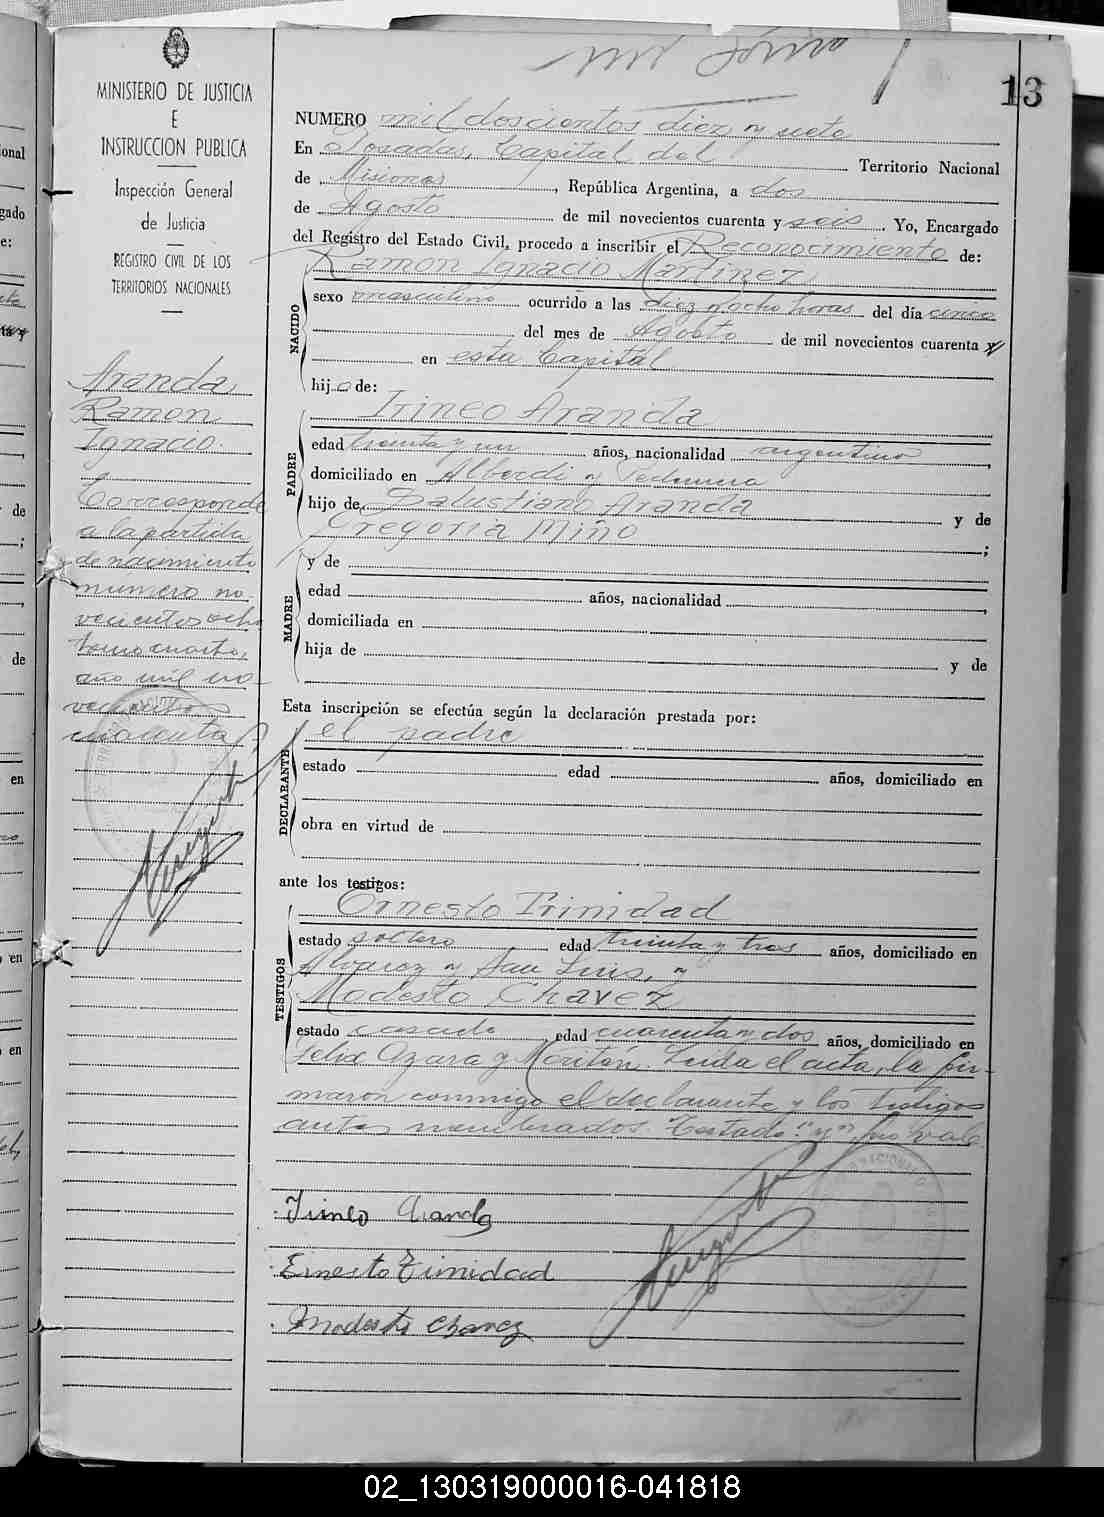 13
MINISTERIO DE JUSTICIA
E
INSTRUCCION PUBLICA
Inspección General
de Justicia
REGISTRO CIVIL DE LOS
TERRITORIOS NACIONALES
Aranda,
Ramon
Ignacio.
Corresponde
a la partida
de nacimiento
número no-
vecientos ocho
tomo cuarto,
año mil no-
vecientos
cuarenta
NUMERO mil doscientos diez y siete
En Posadas, Capital del Territorio Nacional
de Misiones, República Argentina, a dos
de Agosto de mil novecientos cuarenta y seis. Yo, Encargado
del Registro del Estado Civil, procedo a inscribir el Reconocimiento de:
Ramon Ignacio Martinez
NACIDO
sexo masculino ocurrido a las diez y ocho horas del día cinco
del mes de Agosto de mil novecientos cuarenta y
en esta Capital
hijo de:
PADRE
Irineo Aranda
edad treinta y un años, nacionalidad argentino,
domiciliado en Alberdi y Pedernera
hijo de Salustiano Aranda y de
Gregoria Miño ;
MADRE
y de
edad años, nacionalidad ,
domiciliada en
hija de y de
Esta inscripción se efectúa según la declaración prestada por:
DECLARANTE
el padre
estado edad años, domiciliado en
obra en virtud de
ante los testigos:
TESTIGOS
Ernesto Trinidad
estado soltero edad treinta y tres años, domiciliado en
Alvarez y San Luis, y
Modesto Chavez
estado casado edad cuarenta y dos años, domiciliado en
Felix Azara y Moritán. Leida el acta, la fir-
maron conmigo el declarante y los testigos
antes nombrados. Testado: "y" no vale
Irineo Aranda
Ernesto Trinidad
Modesto Chavez
02_130319000016-041818